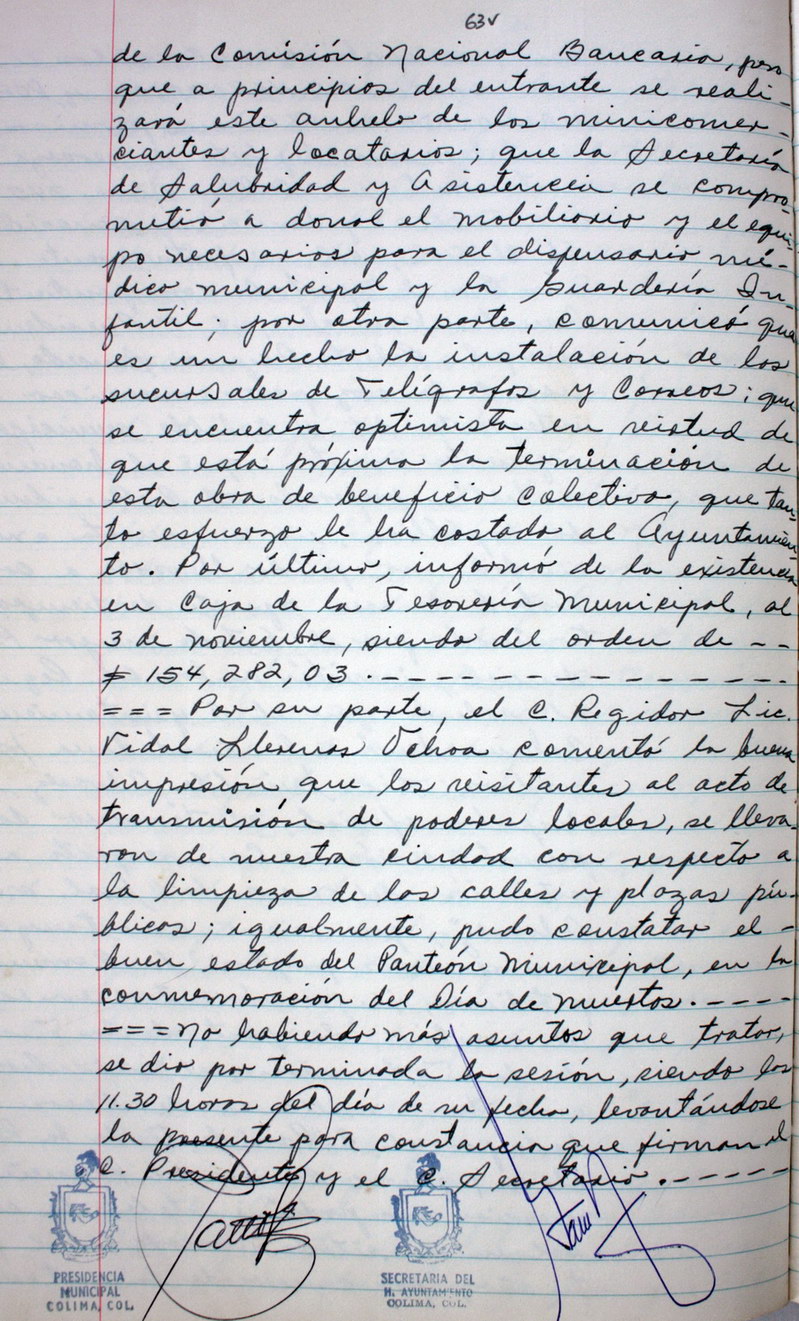 63v
de la Comisión Nacional Bancaria, pero
que a principios del entrante se reali-
zará este anhelo de los minicomer-
ciantes y locatarios; que la Secretaría
de Salubridad y Asistencia se compro-
metió a donal el mobiliario y el equi-
po necesarios para el dispensario mé-
dico municipal y la Guardería In-
fantil; por otra parte, comunicó que
es un hecho la instalación de las
sucursales de Telégrafos y Correos; que
se encuentra optimista en virtud de
que está próxima la terminación de
esta obra de beneficio colectivo, que tan-
to esfuerzo le ha costado al Ayuntamien-
to. Por último, informó de la existencia
en Caja de la Tesorería Municipal, al
3 de noviembre, siendo del orden de --
$ 154,282,03.----------------
=== Por su parte, el C. Regidor Lic.
Vidal Llerenas Ochoa comentó la buena
impresión que los visitantes al acto de
transmisión de poderes locales, se lleva-
ron de nuestra ciudad con respecto a
la limpieza de las calles y plazas pú-
blicas; igualmente, pudo constatar el -
buen estado del Panteón Municipal, en la
conmemoración del Día de Muertos.----
=== No habiendo más asuntos que tratar,
se dio por terminada la sesión, siendo las
11.30 horas del día de su fecha, levantándose
la presente para constancia que firman el
C. Presidente y el C. Secretario.------
PRESIDENCIA
MUNICIPAL
COLIMA, COL.
SECRETARIA DEL
H. AYUNTAMIENTO
COLIMA, COL.